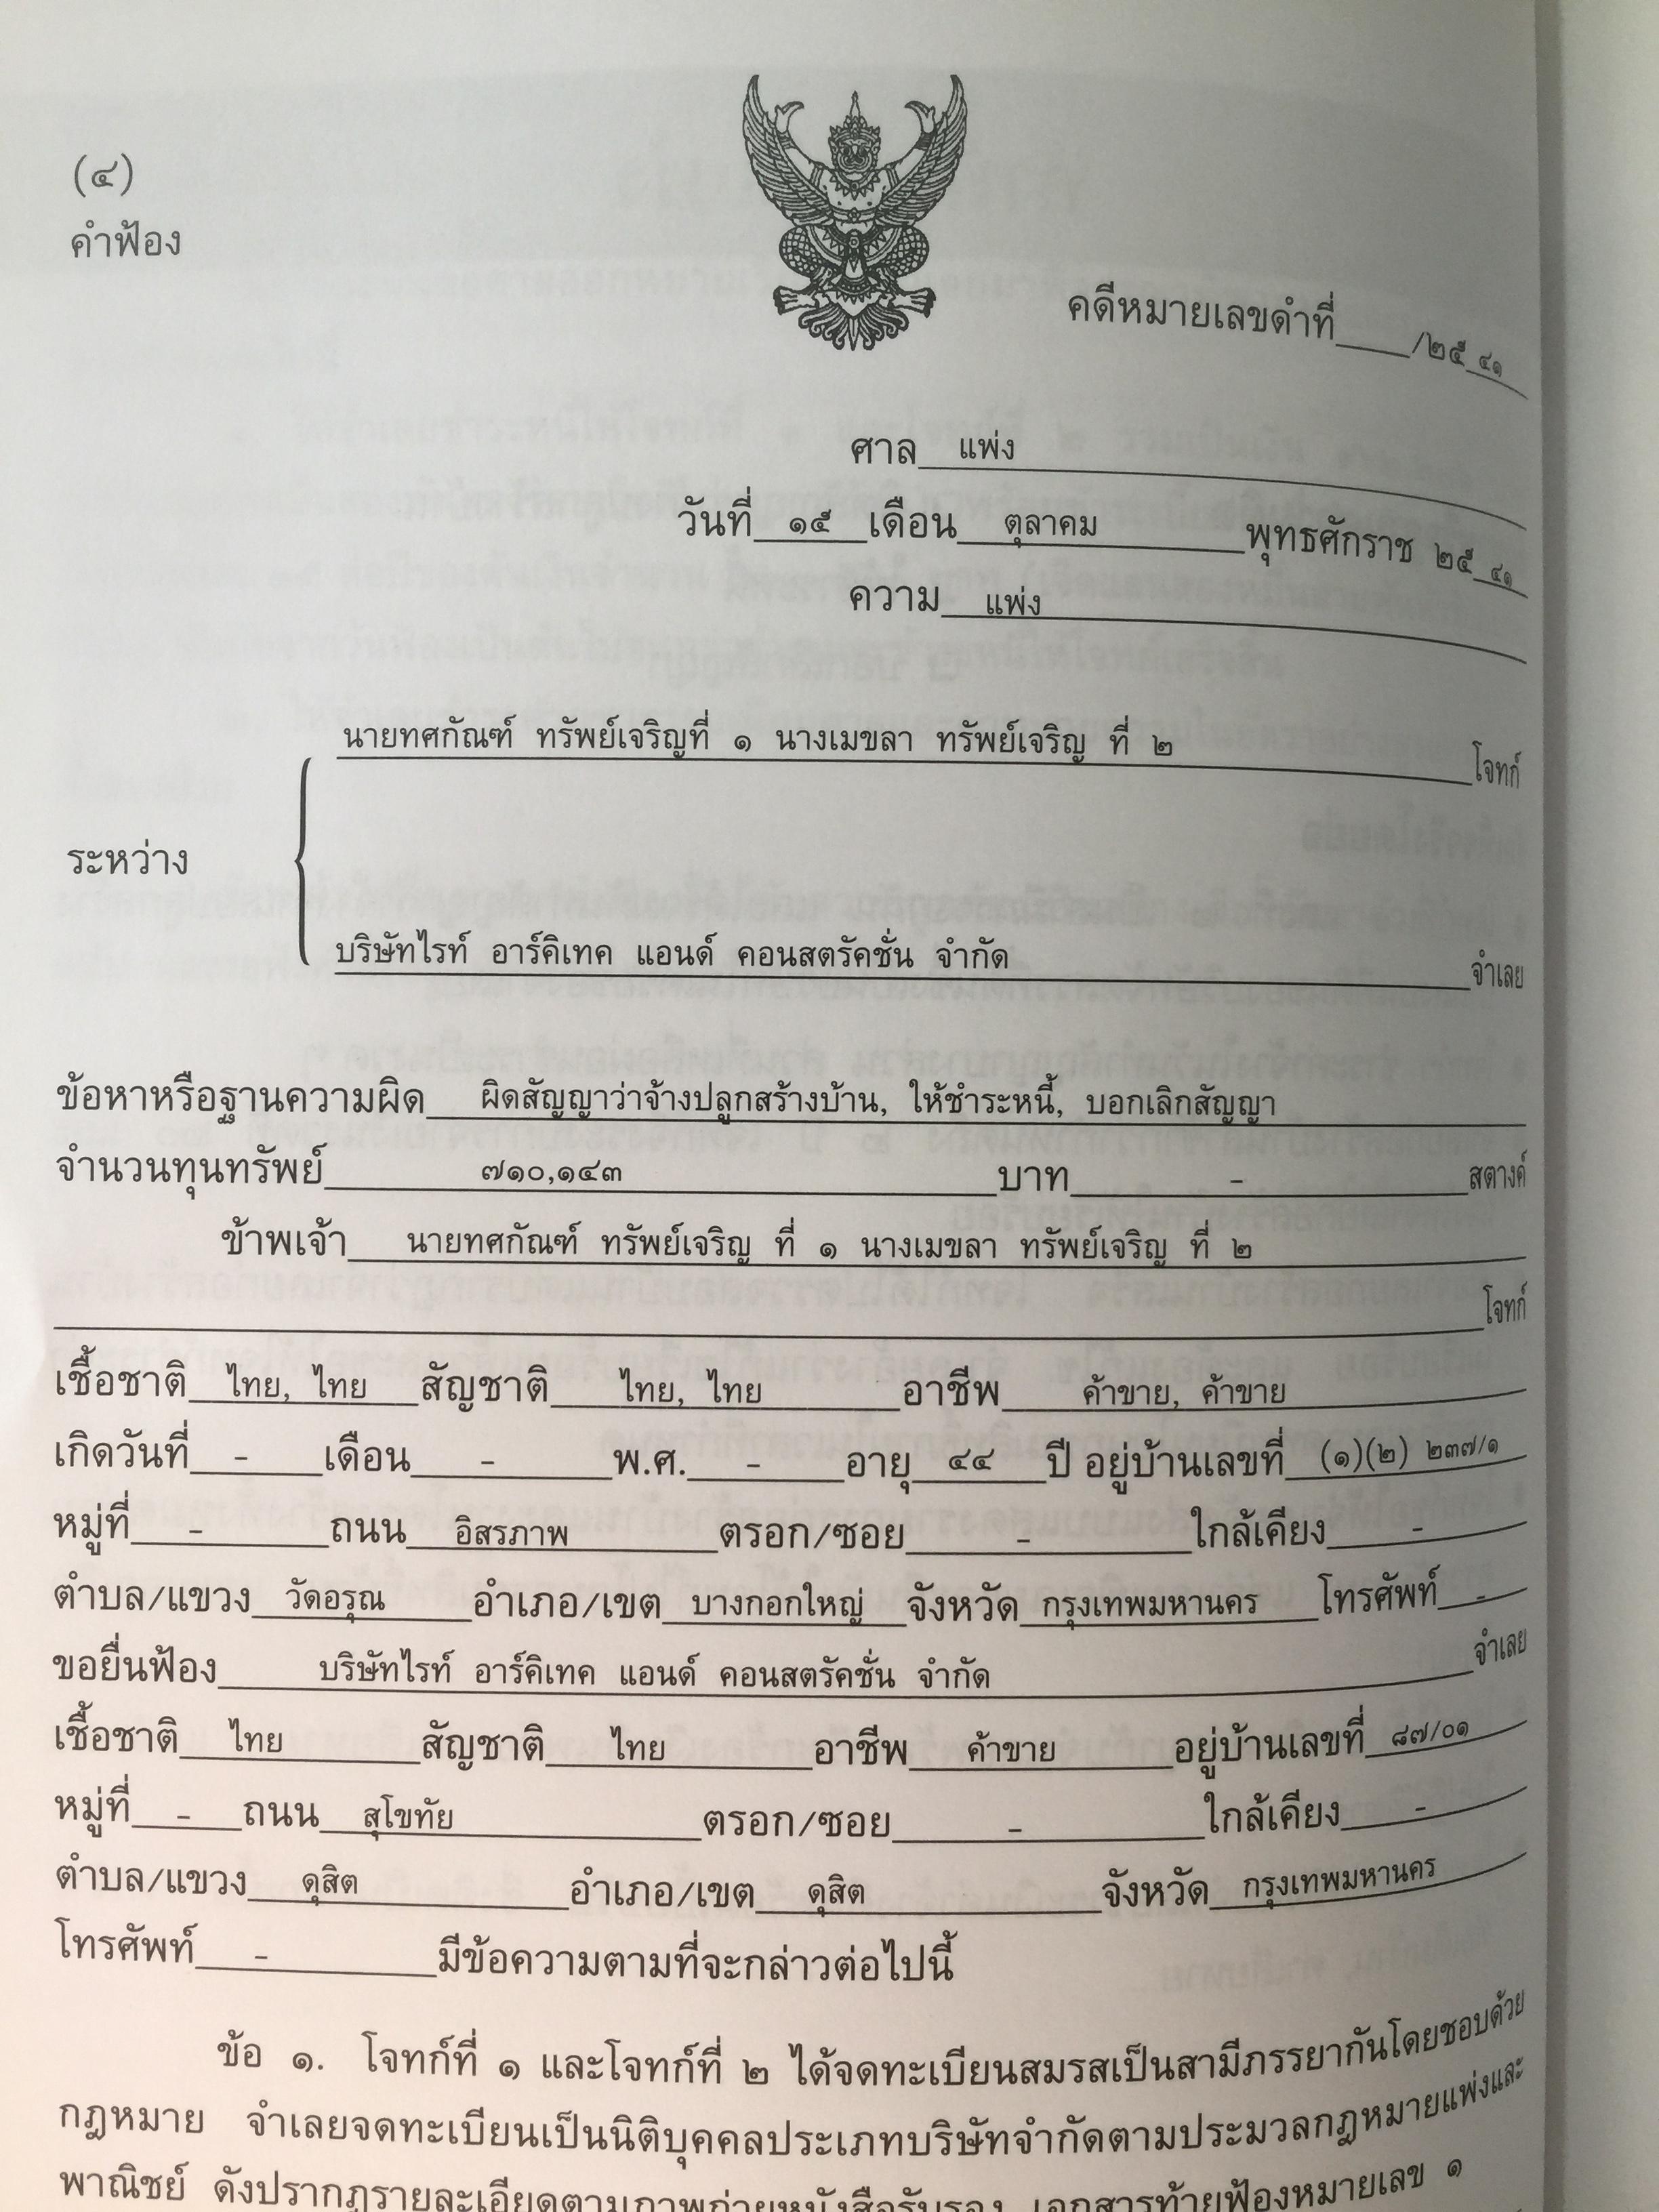 (๔)
คำฟ้อง
คดีหมายเลขดำที่____/๒๕๔๑
ศาล แพ่ง
วันที่ ๑๕ เดือน ตุลาคม พุทธศักราช ๒๕๔๑
ความ แพ่ง
นายทศกัณฑ์ ทรัพย์เจริญที่ ๑ นางเมขลา ทรัพย์เจริญ ที่ ๒ โจทก์
ระหว่าง
บริษัทไรท์ อาร์คิเทค แอนด์ คอนสตรัคชั่น จำกัด จำเลย
ข้อหาหรือฐานความผิด ผิดสัญญาว่าจ้างปลูกสร้างบ้าน, ให้ชำระหนี้, บอกเลิกสัญญา
จำนวนทุนทรัพย์ ๗๑๐,๑๔๓ บาท - สตางค์
ข้าพเจ้า นายทศกัณฑ์ ทรัพย์เจริญ ที่ ๑ นางเมขลา ทรัพย์เจริญ ที่ ๒
โจทก์
เชื้อชาติ ไทย, ไทย สัญชาติ ไทย, ไทย อาชีพ ค้าขาย, ค้าขาย
เกิดวันที่ - เดือน - พ.ศ. - อายุ ๔๔ ปี อยู่บ้านเลขที่ (๑)(๒) ๒๓๗/๑
หมู่ที่ - ถนน อิสรภาพ ตรอก/ซอย - ใกล้เคียง -
ตำบล/แขวง วัดอรุณ อำเภอ/เขต บางกอกใหญ่ จังหวัด กรุงเทพมหานคร โทรศัพท์ -
ขอยื่นฟ้อง บริษัทไรท์ อาร์คิเทค แอนด์ คอนสตรัคชั่น จำกัด จำเลย
เชื้อชาติ ไทย สัญชาติ ไทย อาชีพ ค้าขาย อยู่บ้านเลขที่ ๘๗/๐๑
หมู่ที่ - ถนน สุโขทัย ตรอก/ซอย - ใกล้เคียง -
ตำบล/แขวง ดุสิต อำเภอ/เขต ดุสิต จังหวัด กรุงเทพมหานคร
โทรศัพท์ - มีข้อความตามที่จะกล่าวต่อไปนี้
ข้อ ๑. โจทก์ที่ ๑ และโจทก์ที่ ๒ ได้จดทะเบียนสมรสเป็นสามีภรรยากันโดยชอบด้วย
กฎหมาย จำเลยจดทะเบียนเป็นนิติบุคคลประเภทบริษัทจำกัดตามประมวลกฎหมายแพ่งและ
พาณิชย์ ดังปรากฏรายละเอียดตามภาพถ่ายหนังสือรับรอง เอกสารท้ายฟ้องหมายเลข ๑